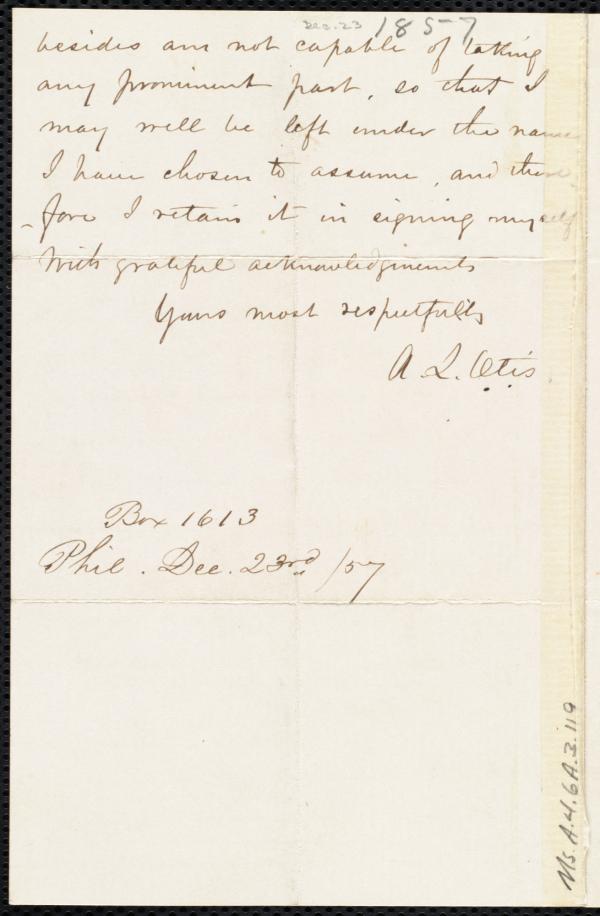 Dec. 23 1857
besides am not capable of taking
any prominent part, so that I
may well be left under the name
I have chosen to assume, and there
-fore I retain it in signing myself
With grateful acknowledgments
Yours most respectfully
A. L. Otis
Box 1613
Phil. Dec. 23rd /57
Ms. A.4.6A.3.119